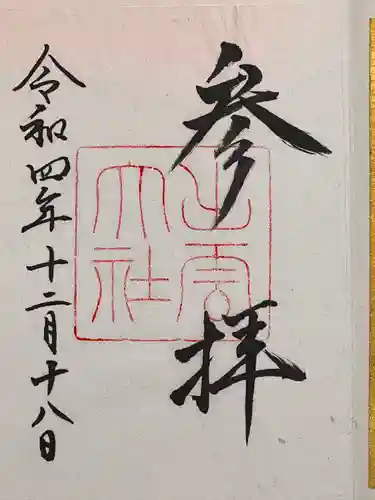 参拝
出雲
大社
令和四年十二月十八日